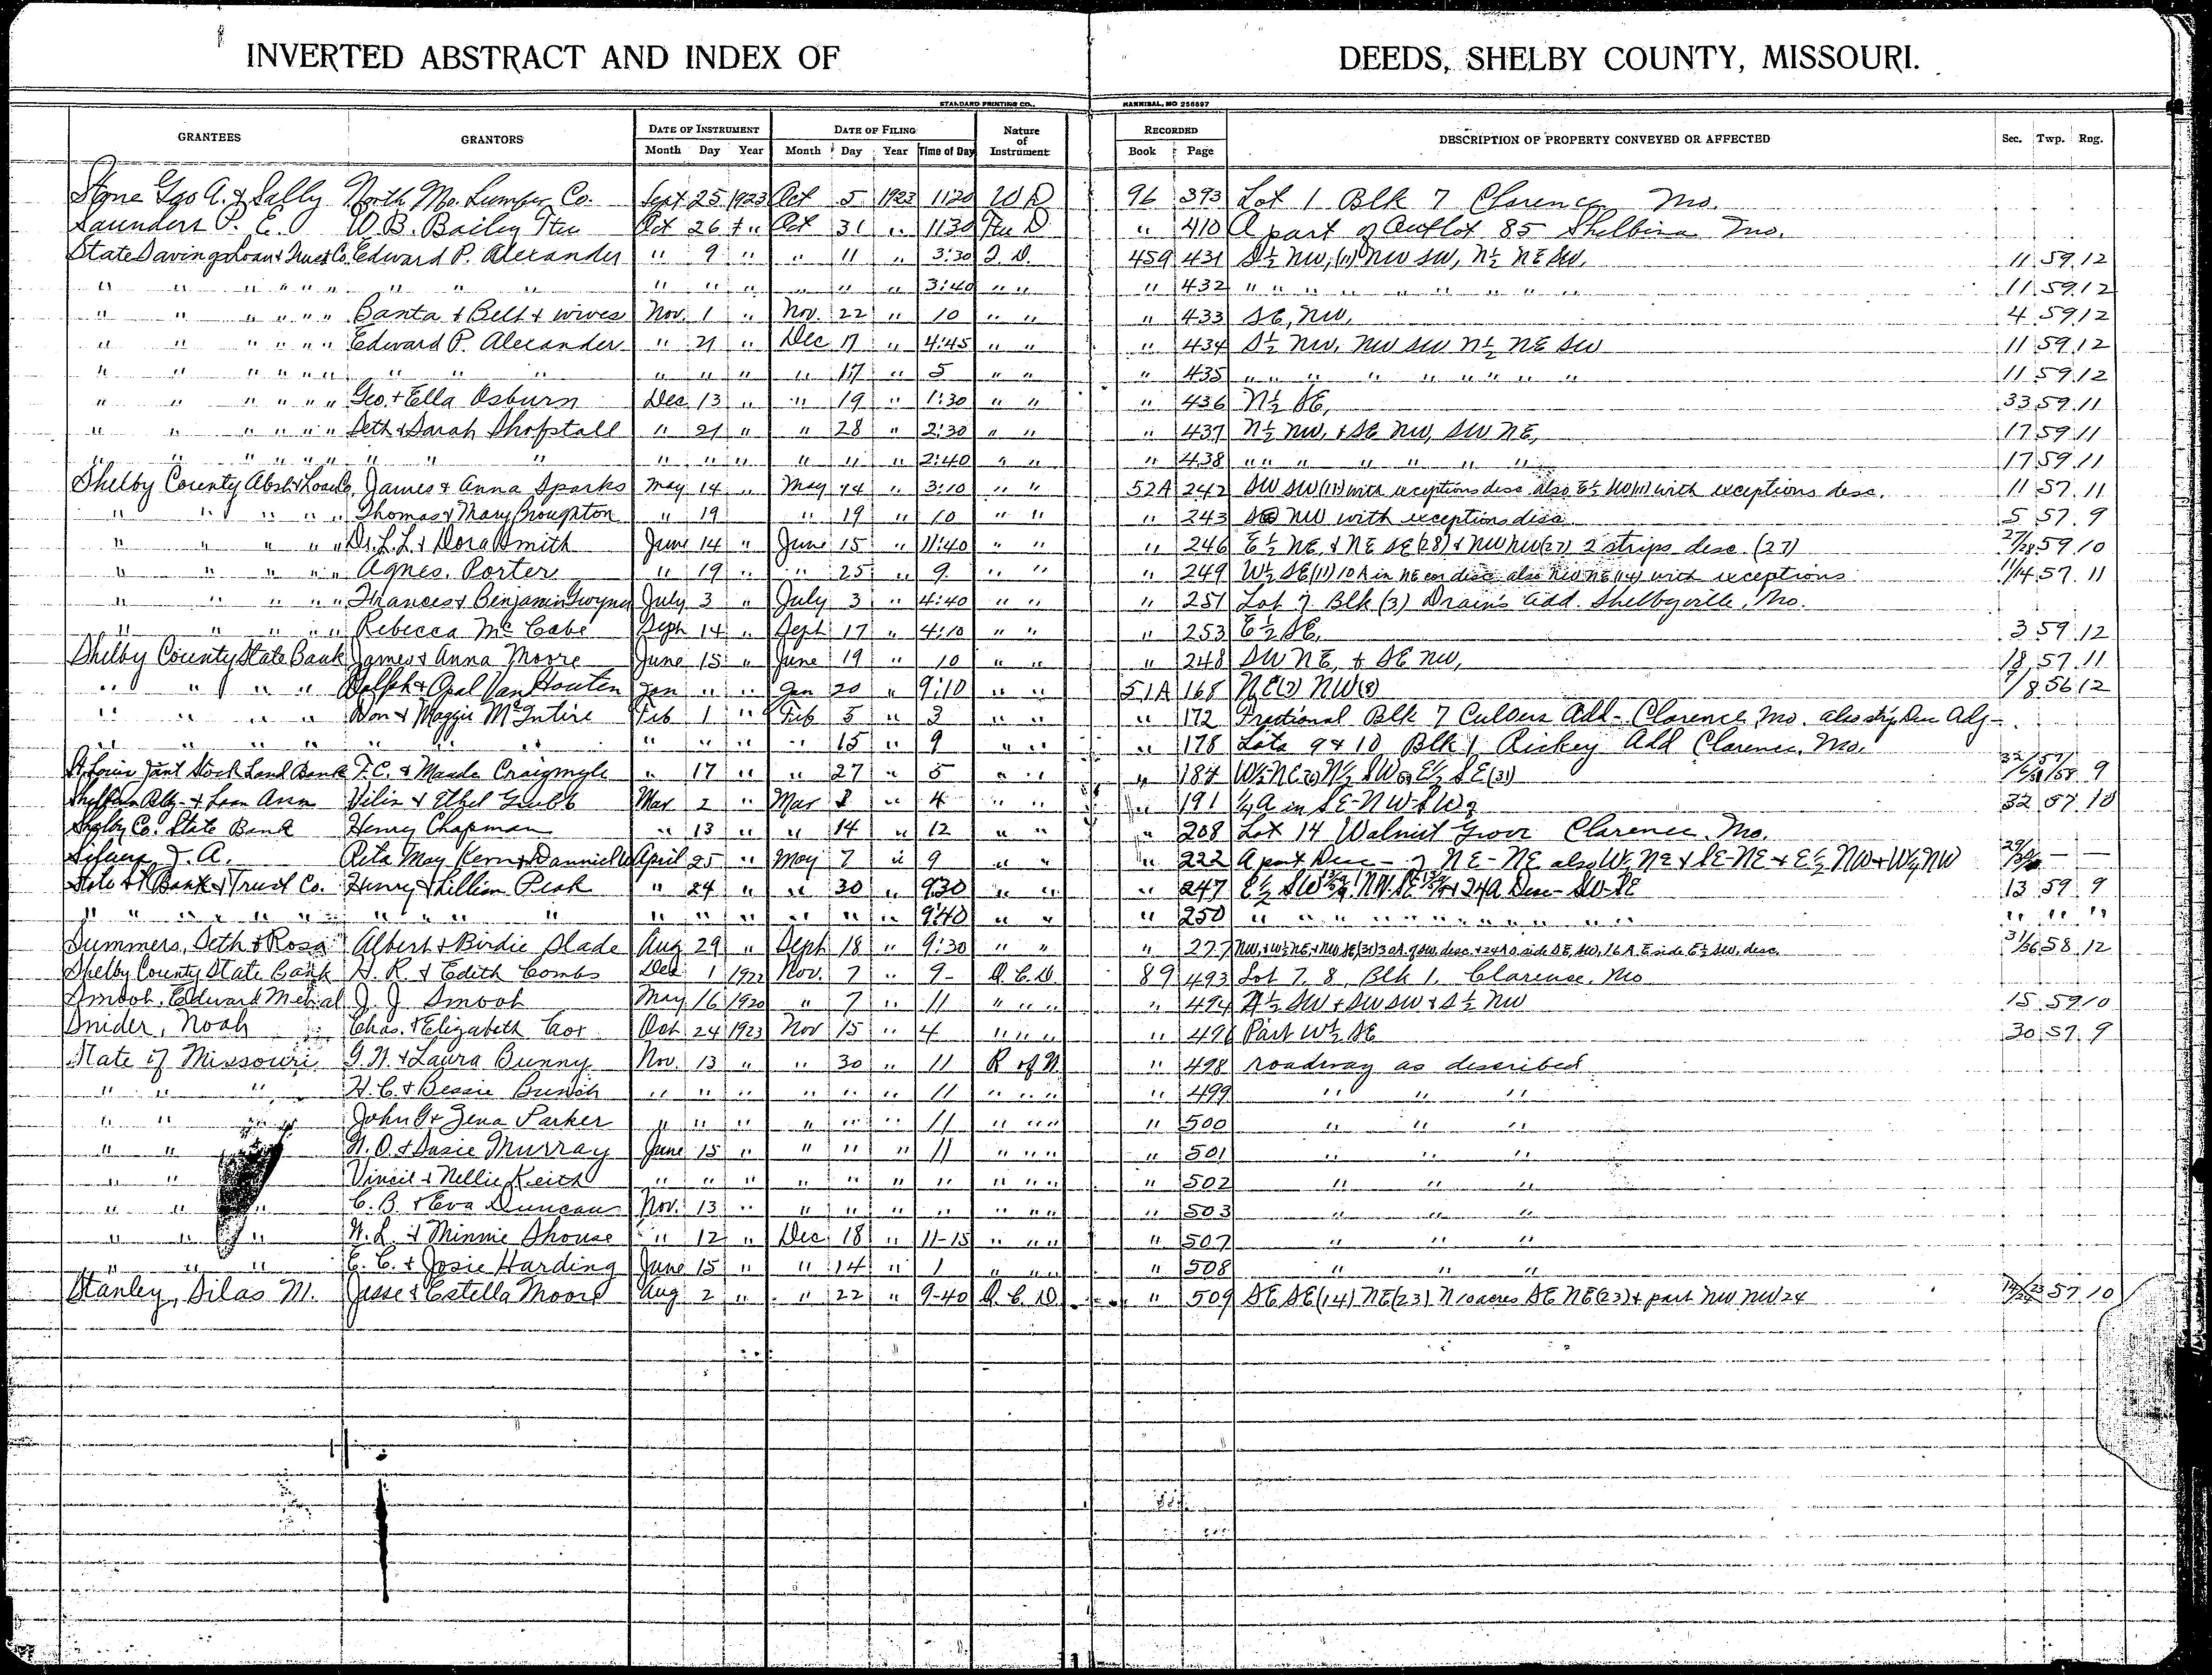 INVERTED ABSTRACT AND INDEX OF DEEDS, SHELBY COUNTY, MISSOURI.
STANDARD PRINTING CO., HANNIBAL, MO 256897
GRANTEES GRANTORS DATE OF INSTRUMENT DATE OF FILING Nature of Instrument RECORDED DESCRIPTION OF PROPERTY CONVEYED OR AFFECTED Sec. Twp. Rng.
Month Day Year Month Day Year Time of Day Book Page
Stone Geo A. & Sally North Mo. Lumber Co. Sept 25 1923 Oct 5 1923 1120 W D 96 393 Lot 1 Blk 7 Clarence Mo.
Saunders P. E. W. B. Bailey Oct 26 " Oct 31 " 1130 D " 410 A part of Outlot 85 Shelbina Mo.
State Savings Loan & Trust Co. Edward P. Alexander " 9 " " 11 " 3:30 459 431 S½ NW, (11) NW SW, N½ NE SW, 11 59 12
" " " " " " " " " " " " " " " 3:40 " " " 432 " " " " " " " " " 11 59 12
" " " " " " Banta & Belt & wives Nov. 1 " Nov. 22 " 10 " " " 433 SE, NW, 4 59 12
" " " " " " Edward P. Alexander " 21 " Dec 17 " 4:45 " " " 434 S½ NW, NW SW N½ NE SW 11 59 12
" " " " " " " " " " " " " 17 " 5 " " " 435 " " " " " " " " " 11 59 12
" " " " " " Geo. & Ella Osburn Dec 13 " " 19 " 1:30 " " " 436 N½ SE, 33 59 11
" " " " " " Seth & Sarah Shofstall " 21 " " 28 " 2:30 " " " 437 N½ NW, & SE NW, SW NE, 17 59 11
" " " " " " " " " " " " " " 2:40 " " " 438 " " " " " " " 17 59 11
Shelby County Abst & Loan Co. James & Anna Sparks May 14 " May 14 " 3:10 " " 52A 242 SW SW (11) with exceptions desc also E½ (11) with exceptions desc. 11 57 11
" " " " " Thomas & Mary Broughton " 19 " 19 " 10 " " " 243 NW with exceptions disc 5 57 9
" " " " " Dr. L. L. & Dora Smith June 14 " June 15 " 11:40 " " " 246 E½ NE, & NE SE (28) & NW NW (27) 2 strips desc. (27) 27/28 59 10
" " " " " Agnes Porter " 19 " " 25 " 9 " " " 249 W½ SE (11) 10 A in NE cor desc also NW NE (14) with exceptions 11/14 57 11
" " " " " Frances & Benjamin Gwynn July 3 " July 3 " 4:40 " " " 251 Lot 7 Blk (3) Drain's Add. Shelbyville, Mo.
" " " " " Rebecca McCabe Sept 14 " Sept 17 " 4:10 " " " 253 E½ SE, 3 59 12
Shelby County State Bank James & Anna Moore June 15 " June 19 " 10 " " " 248 SW NE, & SE NW, 18 57 11
" " " " Dolph & Opal Van Houten Jan " " Jan 20 " 9:10 " " 51A 168 NE(7) NW(8) 7/8 56 12
" " " " Don & Maggie McIntire Feb 1 " Feb 5 " 3 " " " 172 Fractional Blk 7 Culvers Add - Clarence, Mo. also strip Desc Adj -
" " " " " " " " " " 15 " 9 " " " 178 Lots 9 & 10 Blk 1 Rickey Add Clarence, Mo.
St Louis Joint Stock Land Bank T. C. & Maude Craigmyle " 17 " " 27 " 5 " " " 184 9
& Loan Assn & Ethel Mar 2 " Mar 8 " 4 " " " 191 ¼ A in SE-NW-SW 32 57 10
Shelby Co. State Bank Henry Chapman " 13 " " 14 " 12 " " " 208 Lot 14 Walnut Grove Clarence, Mo.
J. A. Reta May Kern & April 25 " May 7 " 9 " " " 222 A part Desc - of NE-NE also W½ NE & SE-NE & E½ NW & W½ NW
Bank & Trust Co. Henry & Lillian Peak " 24 " " 30 " 930 " " " 247 E½ SW NW-SE & 24A Desc - SW-SE 13 59 9
" " " " " " " " " " " " " " " 9:40 " " " 250 " " " " " " " " " " "
Summers, Seth & Rosa Albert & Birdie Slade Aug 29 " Sept 18 " 9:30 " " " 277 31/36 58 12
Shelby County State Bank H. R. & Edith Combs Dec 1 1922 Nov. 7 " 9- Q. C. D. 89 493 Lot 7, 8, Blk 1, Clarence, Mo
Smoot, Edward J. J. Smoot May 16 1920 " 7 " 11 " " " " 494 SW & SW SW & S½ NW 15 59 10
Snider, Noah Chas. & Elizabeth Cox Oct 24 1923 Nov 15 " 4 " " " " 496 Part W½ SE 30 57 9
State of Missouri & Laura Bunny Nov. 13 " " 30 " 11 R of W " 498 roadway as described
" " " H. C. & Bessie " " " " " " 11 " " " " 499 " " "
" " John & Zena Parker " " " " " " 11 " " " " 500 " " "
" " & Susie Murray June 15 " " " " 11 " " " " 501 " " "
" " Vincil & Nellie Keith " " " " " " " " " " " 502 " " "
" " C. B. & Eva Duncan Nov. 13 " " " " " " " " " 503 " " "
" " " W. L. & Minnie Shouse " 12 " Dec 18 " 11-15 " " " " 507 " " "
" " " E. C. & Josie Harding June 15 " " 14 " 1 " " " " 508 " " "
Stanley, Silas M. Jesse & Estella Moore Aug 2 " " 22 " 9-40 Q. C. D. " 509 SE SE (14) NE (23) N 10 acres SE NE (23) & part NW NW 24 57 10